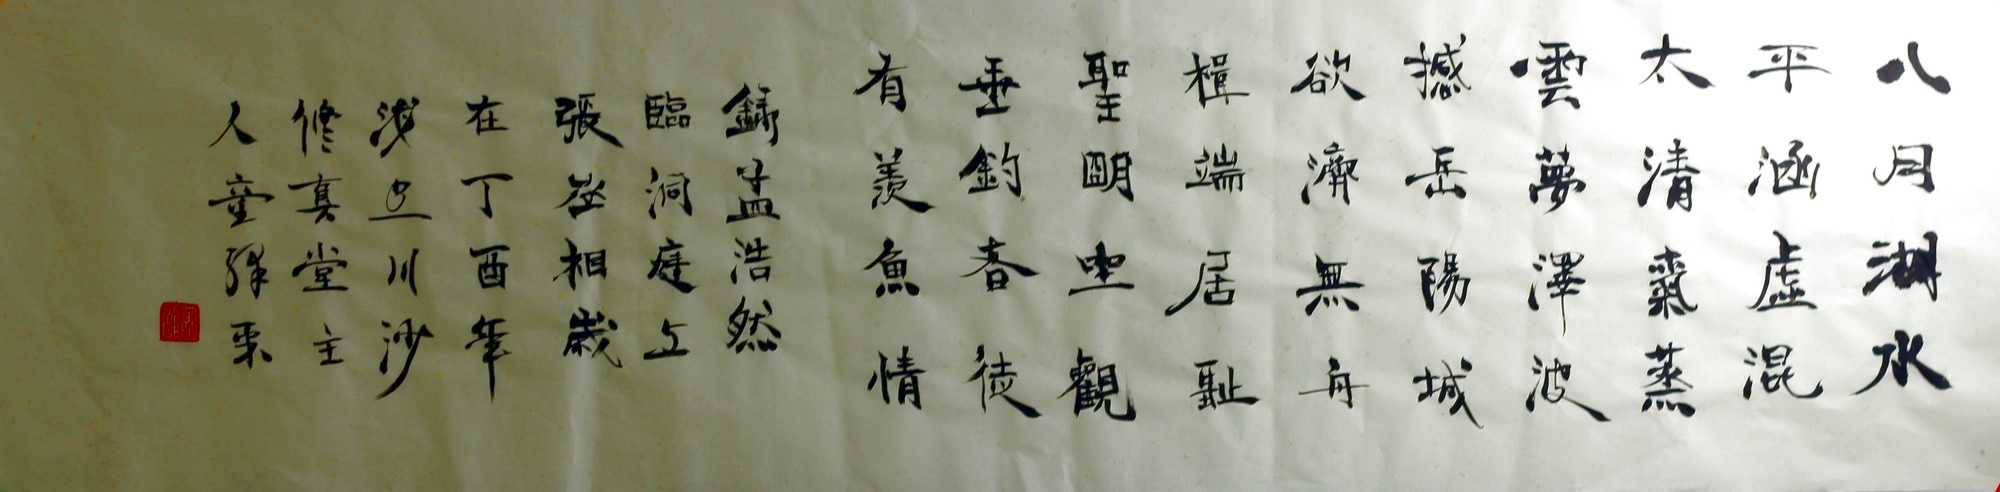 八月湖水
平涵虛混
太清氣蒸
雲夢澤波
撼岳陽城
欲濟無舟
楫端居耻
聖明坐觀
垂釣者徒
有羨魚情
錄孟浩然
臨洞庭上
張丞相歲
在丁酉年
川沙
修真堂主
人童